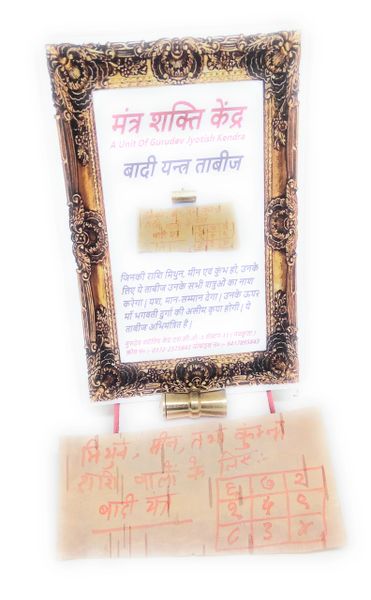 मंत्र शक्ति केंद्र
A Unit Of Gurudev Jyotish Kendra
बादी यन्त्र ताबीज
जिनकी राशि मिथुन, मीन एवं कुंभ हो, उनके
लिए ये ताबीज उनके सभी शत्रुओं का नाश
करेगा। यश, मान-सम्मान देगा। उनके ऊपर
माँ भगवती दुर्गा की असीम कृपा होगी। ये
ताबीज अभिमंत्रित है।
गुरुदेव ज्योतिष केंद्र एस.सी.ओ. सेक्टर
फोन नं:- मोबाइल नं:-
मिथुन, मीन, तथा कुम्भ
राशि वालों के लिए:-
बादी यंत्र
६ ७ २
१ ५ ९
८ ३ ४